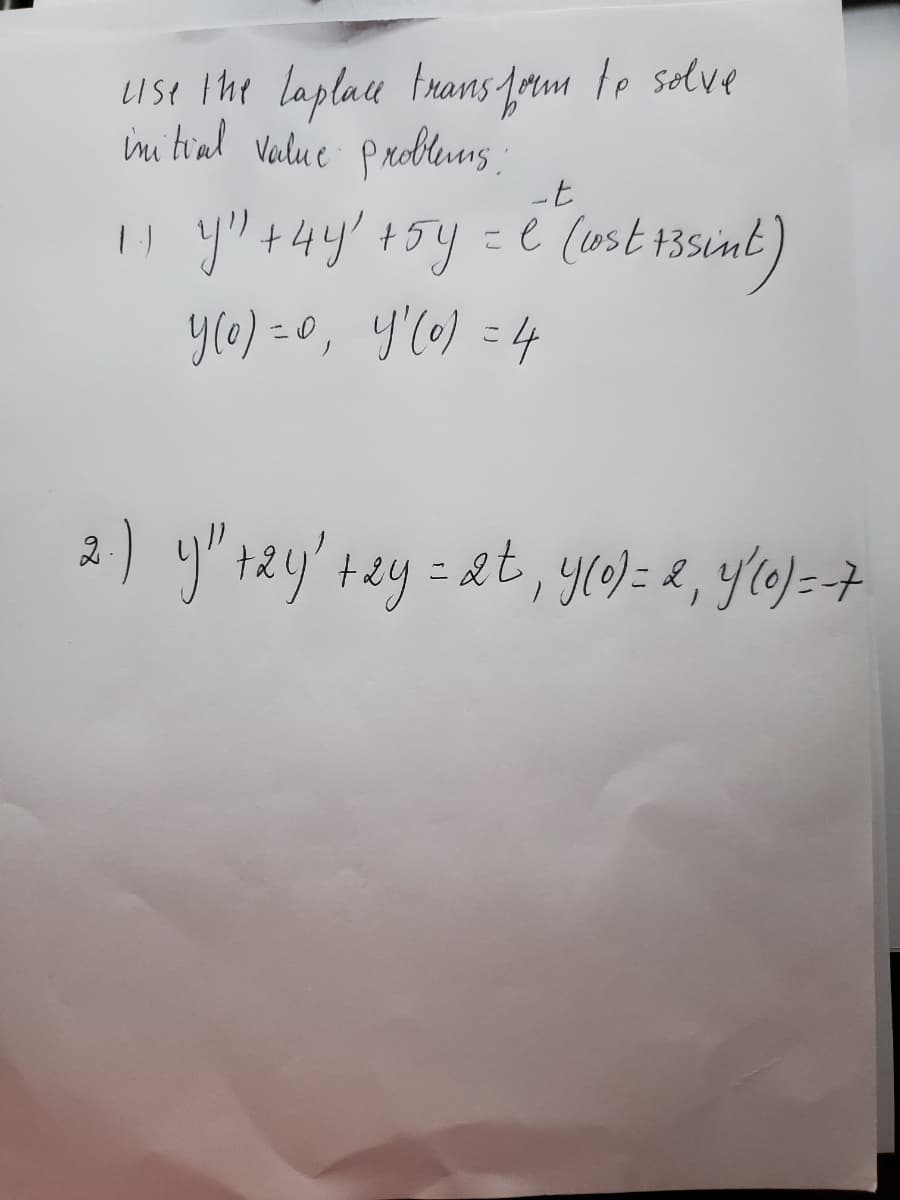 Use the Laplace transform to solve
initial value problems:
1.) y'' + 4y' + 5y = e^-t (cost + 3sint)
y(0) = 0, y'(0) = 4
2.) y'' + 2y' + 2y = 2t, y(0) = 2, y'(0) = -7